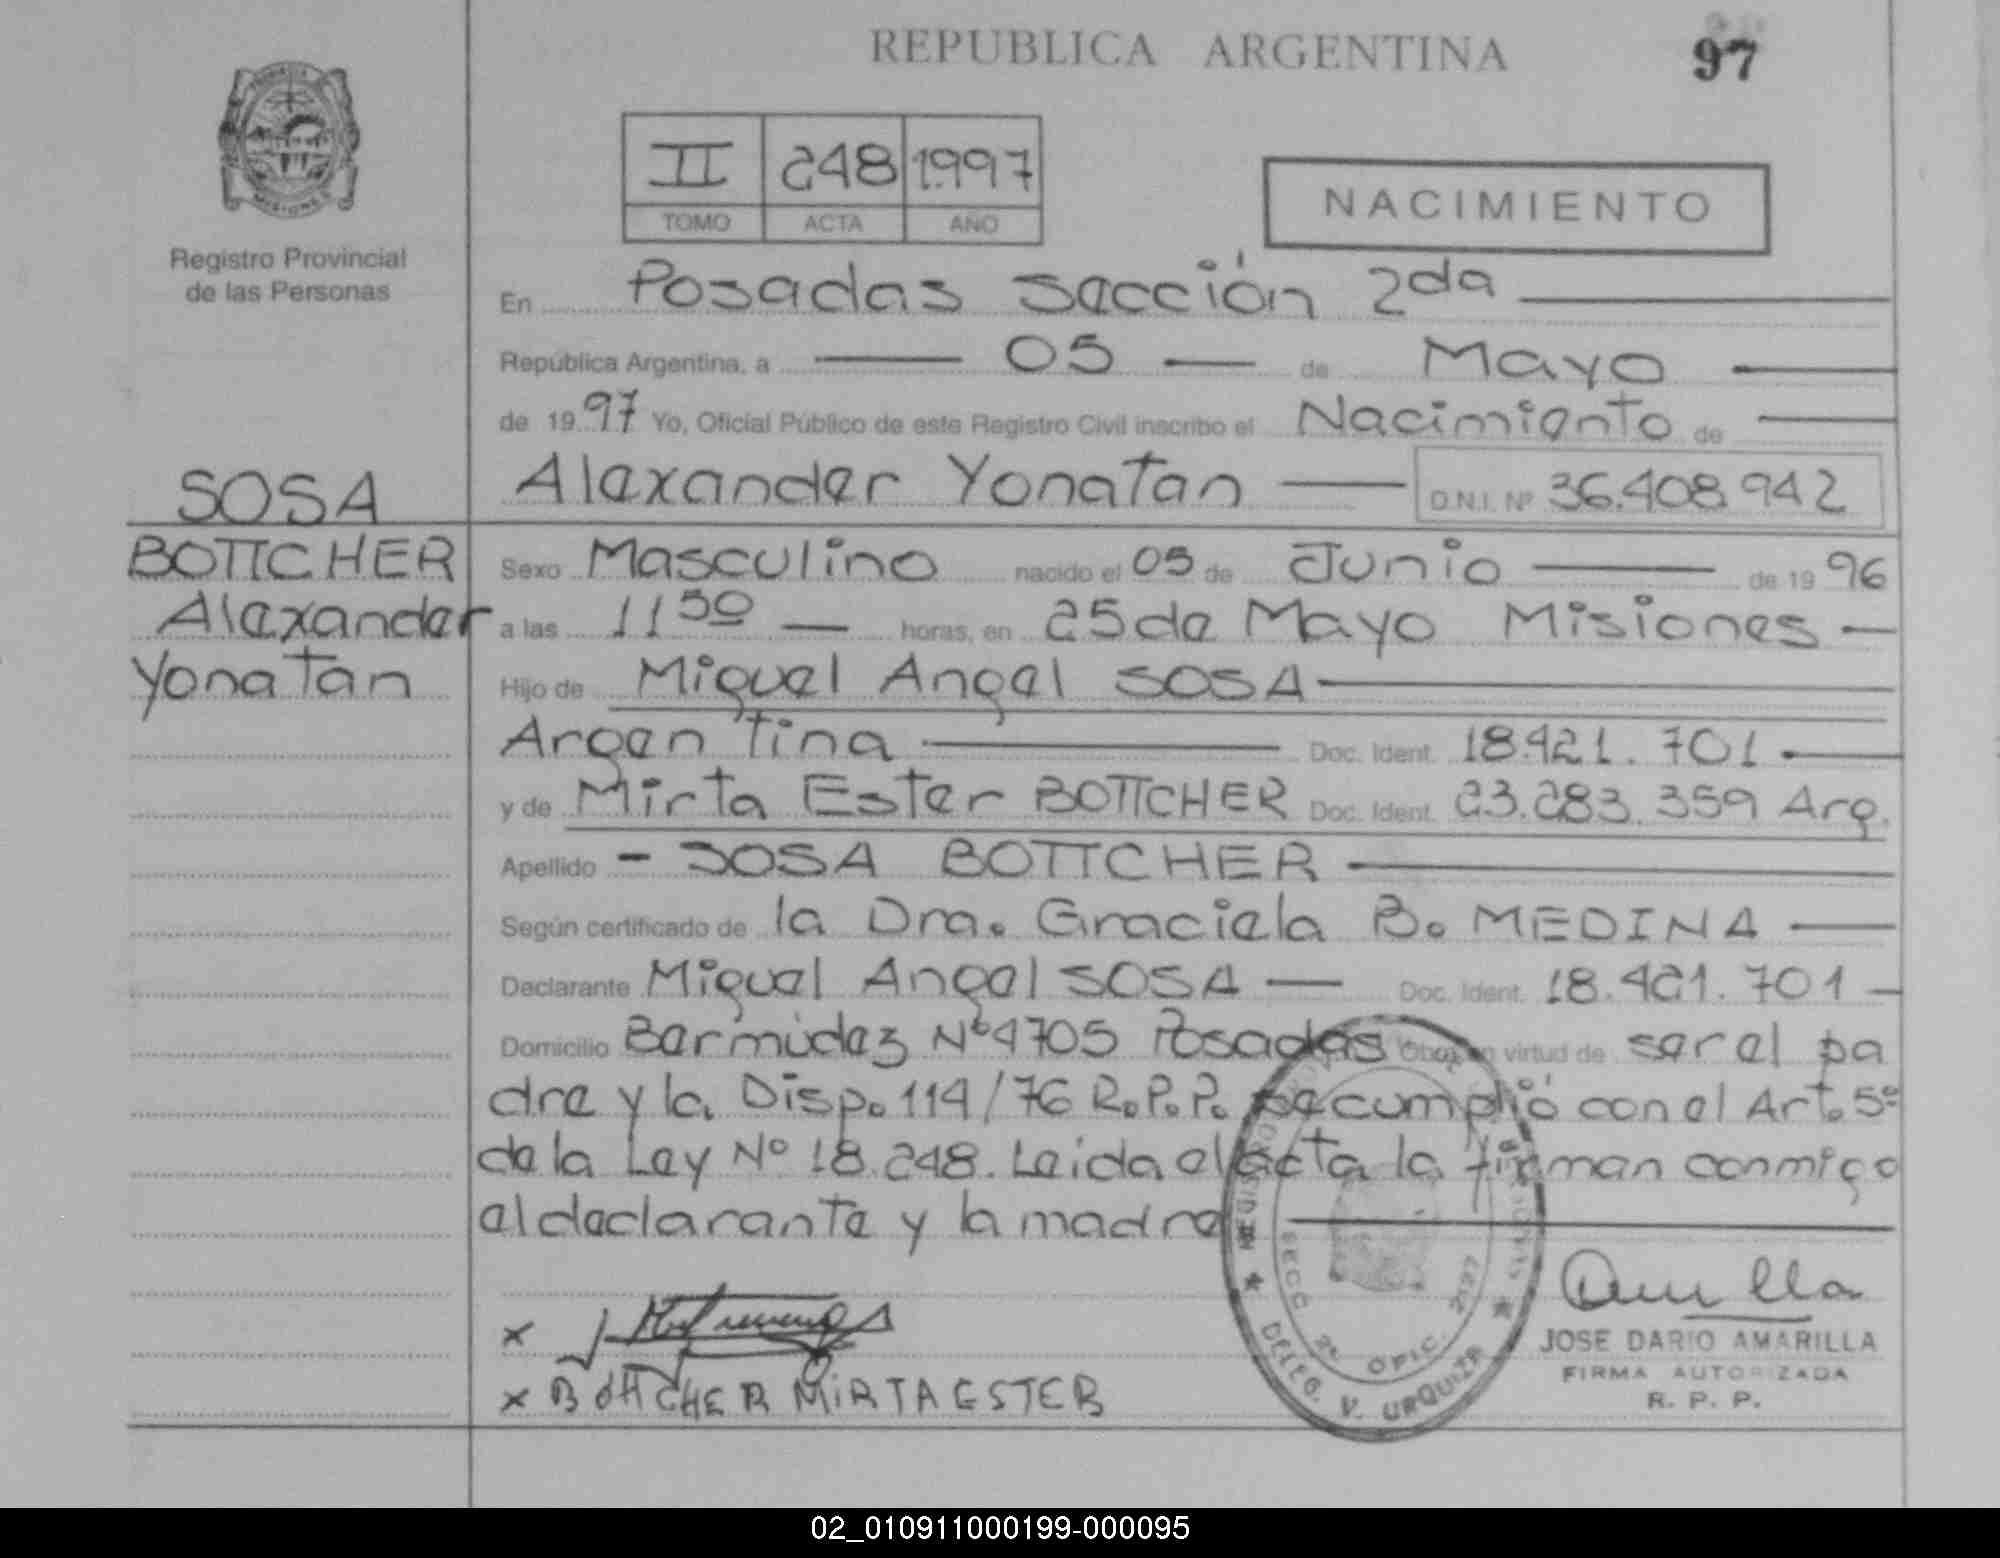 REPUBLICA ARGENTINA
97
II 248 1.997
TOMO ACTA AÑO
NACIMIENTO
MISIONES
Registro Provincial
de las Personas
En Posadas Sección 2da
República Argentina, a 05 de Mayo
de 1997 Yo, Oficial Público de este Registro Civil inscribo el Nacimiento de
Alexander Yonatan D.N.I. Nº 36.408.942
SOSA
BOTTCHER
Alexander
Yonatan
Sexo Masculino nacido el 05 de Junio de 1996
a las 11 50 horas, en 25 de Mayo Misiones
Hijo de Miguel Angel SOSA
Argentina Doc. Ident. 18.421.701
y de Mirta Ester BOTTCHER Doc. Ident. 23.283.359 Arg.
Apellido SOSA BOTTCHER
Según certificado de la Dra. Graciela B. MEDINA
Declarante Miguel Angel SOSA Doc. Ident. 18.421.701
Domicilio Bermúdez Nº 4705 Posadas Obra en virtud de ser el pa
dre y la Disp. 114/76 R.P.P. se cumplió con el Art. 5º
de la Ley Nº 18.248. Leida el acta la firman conmigo
el declarante y la madre
x
x BOTTCHER MIRTA ESTER
SECC 2º OFIC. 2127
DELEG. V. URQUIZA
JOSE DARIO AMARILLA
FIRMA AUTORIZADA
R. P. P.
02_010911000199-000095